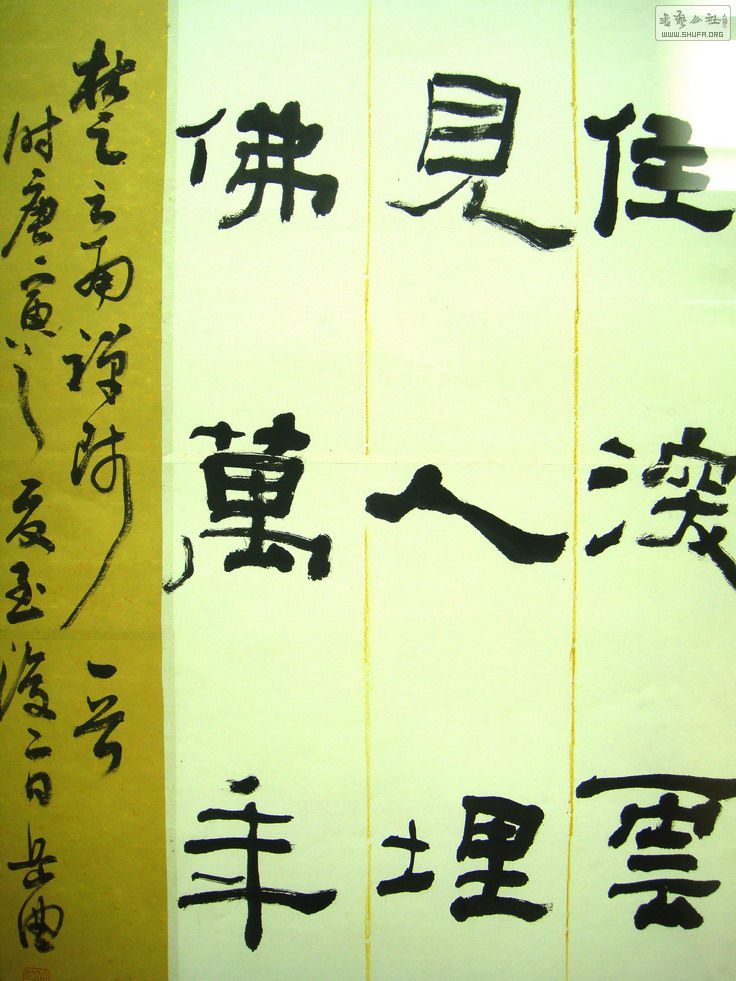 住深雲
見人埋
佛萬年
楚云南禅师 一首
时庚寅之夏至後二日
書藝公社
WWW.SHUFA.ORG